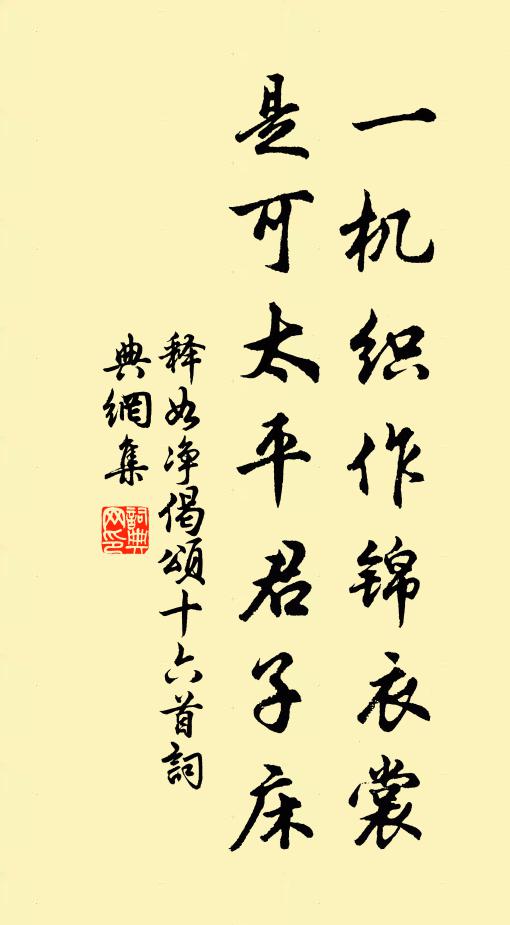 一机织作锦衣裳
是可太平君子床
释如净偈颂十六首詞
典網集
詞典
网印